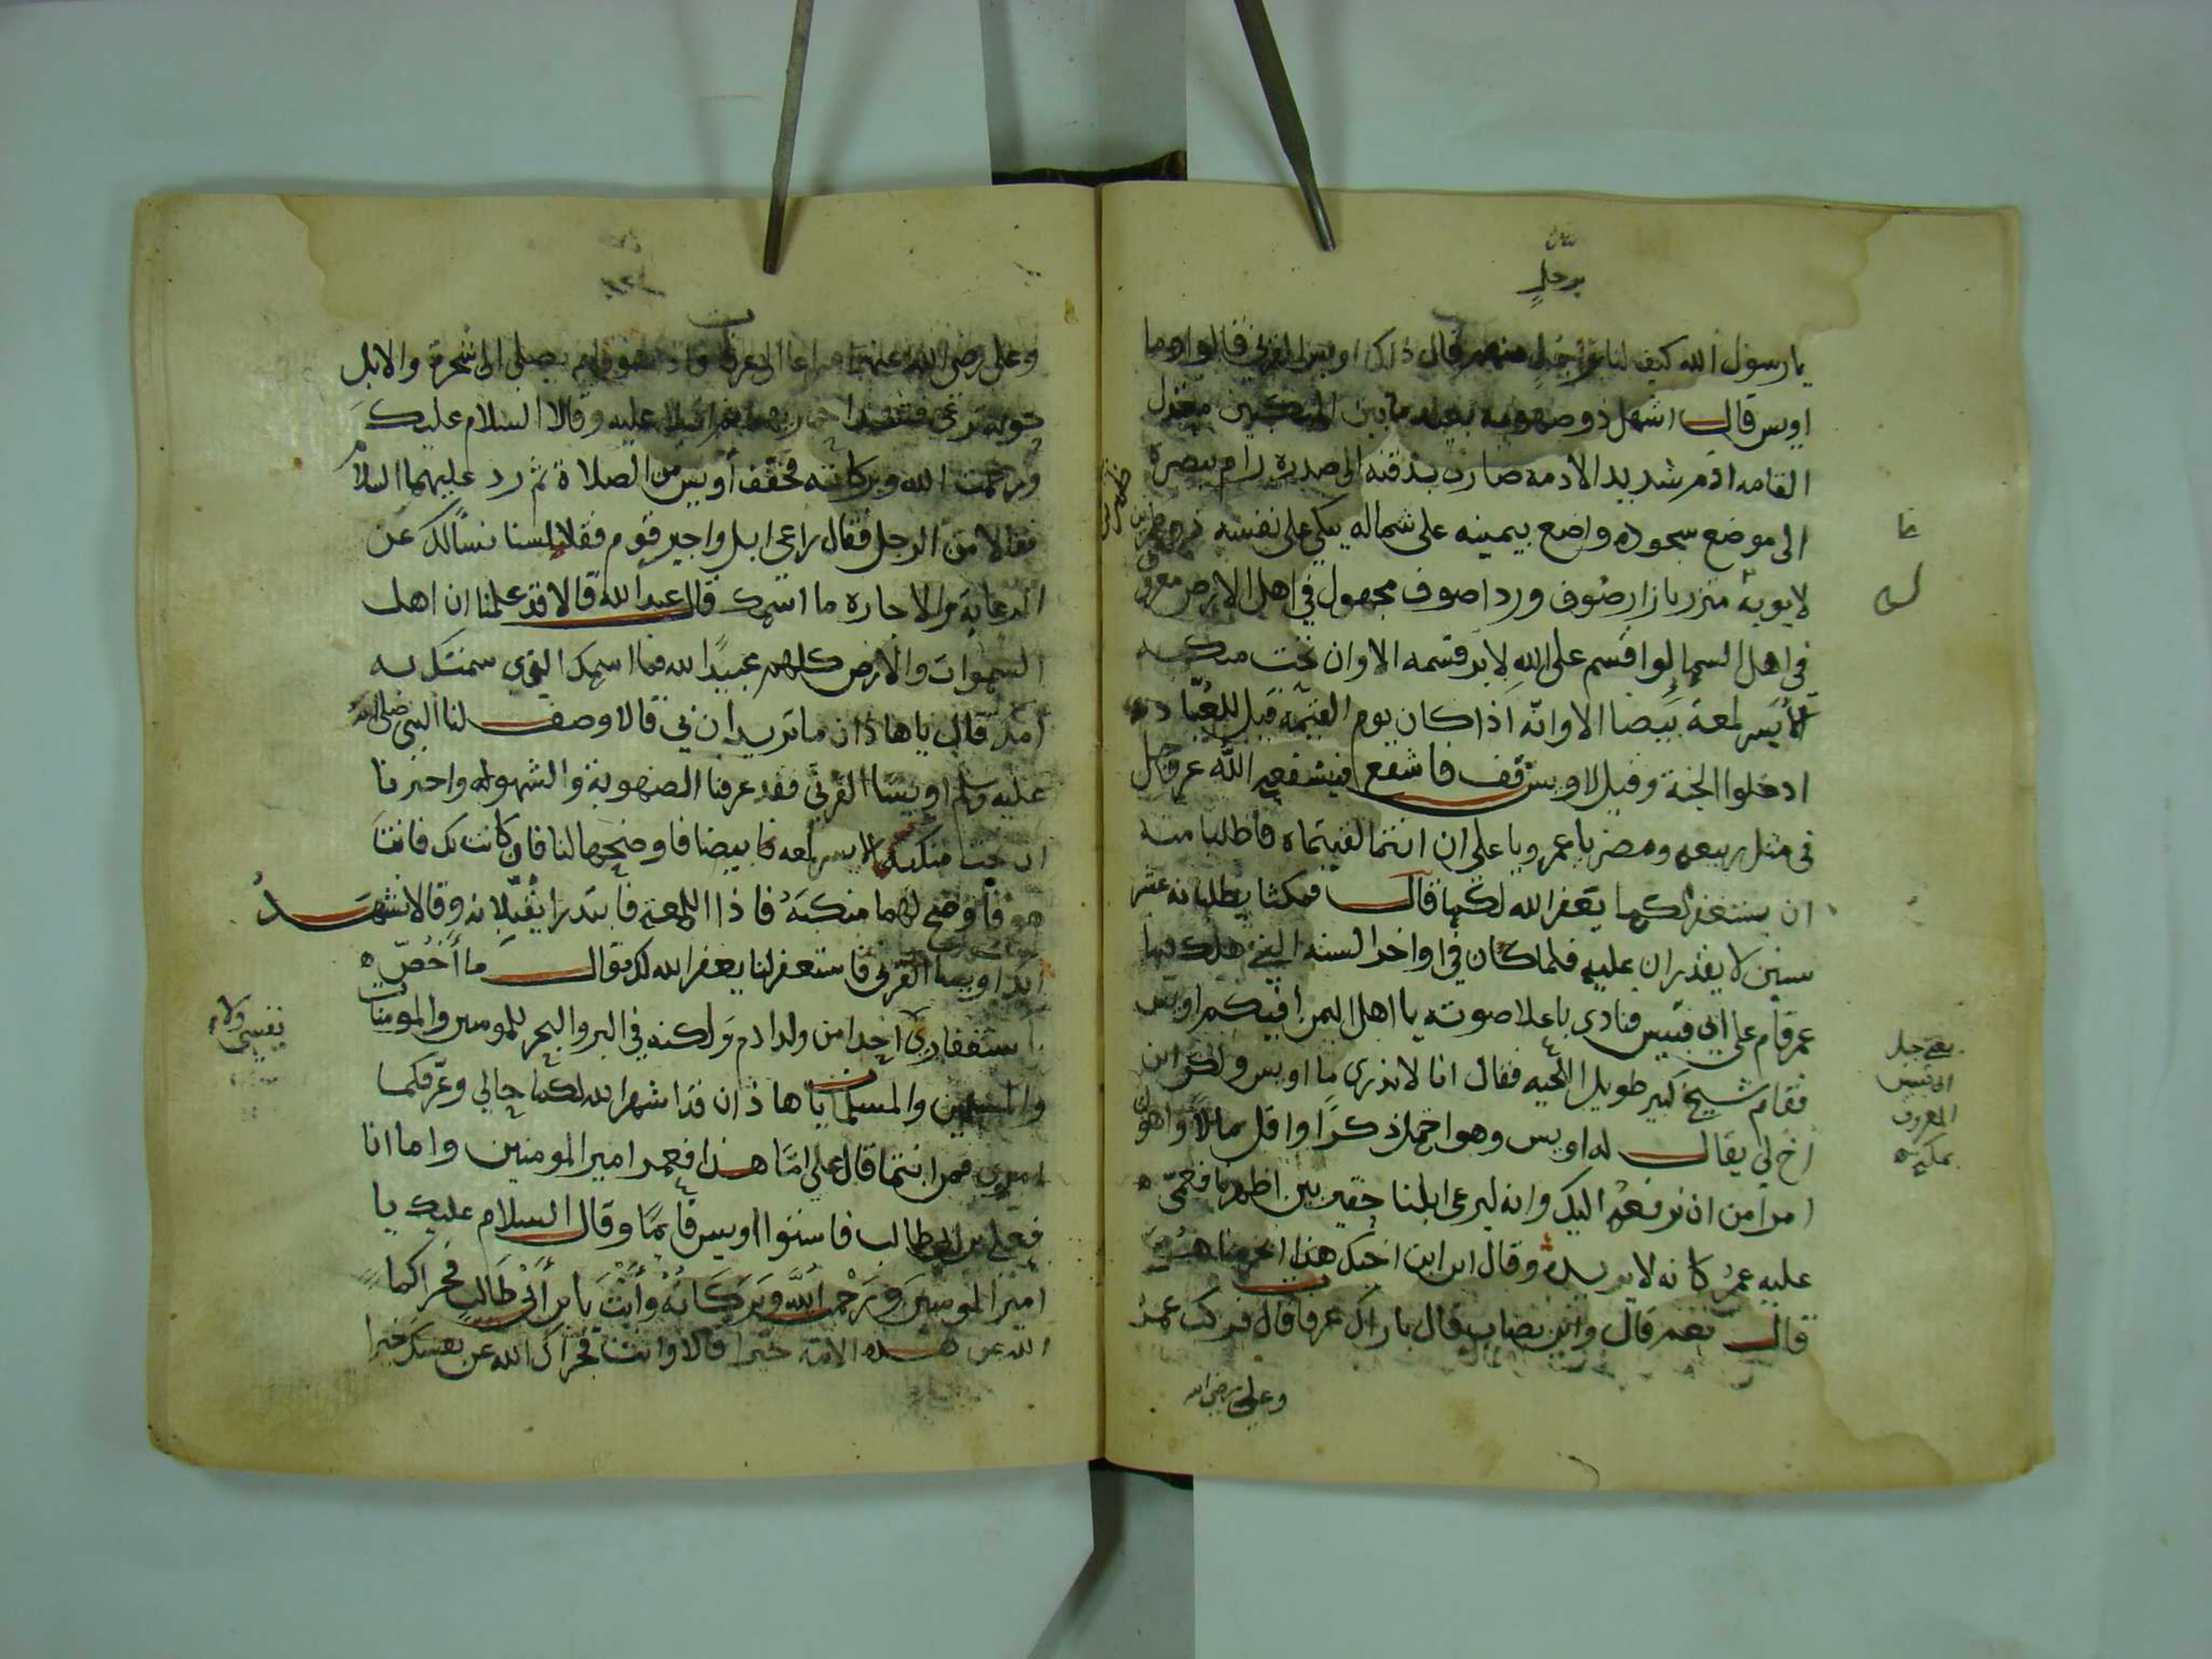 برجل
يا رسول الله كيف لنا برجل منهم قال ذلك اويس القرني قالوا وما
اويس قال اشهل ذو صهوبه بعيد ما بين المنكبين معتدل
القامه ادم شديد الادمه ضارب بذقنه الى صدره رام ببصره
الى موضع سجوده واضع بيمينه على شماله يبكي على نفسه ذو طمرين
لا يوبه متزر بازار صوف وردا صوف مجهول في اهل الارض معروف
في اهل السما لو اقسم على الله لابر قسمه الا وان تحت منكبه
الايسر لمعة بيضا الا وانه اذا كان يوم القيمة قيل للعباد
ادخلوا الجنة وقيل لاويس قف فاشفع فيشفعه الله عز وجل
في مثل ربيعه ومضر يا عمر ويا علي ان انتما لقيتماه فاطلبا منه
ان يستغفر لكما يغفر الله لكما قال فمكثا يطلبانه عشر
سنين لا يقدران عليه فلما كان في اواخر السنه التي هلك فيها
عمر قام على ابي قبيس فنادى باعلا صوته يا اهل اليمن افيكم اويس
فقام شيخ كبير طويل اللحيه فقال انا لا ندري ما اويس ولكن ابن
اخ لي يقال له اويس وهو اخمل ذكرا واقل مالا واهون
امرا من ان نرفعه اليك وانه ليرعى ابلنا حقير بين اظهرنا فعمى
عليه عمر كانه لا يريده وقال اين ابن اخيك هذا ابحرمنا هو
قال نعم قال واين يصاب قال باراك عرفا قال فركب عمر
وعلي رضي الله
يعني جبل
ابي قبيس
المعروف
بمكه
وعلي رضي الله عنهما سراعا الى عرفات فاذا هو قايم يصلي الى شجرة والابل
حوله ترعى فشدا حماريهما ثم اقبلا عليه وقالا السلام عليك
ورحمت الله وبركاته فخفف اويس من الصلاة ثم رد عليهما السلام
فقالا من الرجل فقال راعي ابل واجير قوم فقالا لسنا نسالك عن
الرعاية والاجاره ما اسمك قال عبد الله قالا قد علمنا ان اهل
السموات والارض كلهم عبيدا لله فما اسمك الذي سمتك به
امك قال يا هاذان ما تريدان ني قالا وصف لنا النبي صلى الله
عليه وسلم اويسا القرني فقد عرفنا الصهوبة والشهوله واخبرنا
ان تحت منكبه الايسر لمعه بيضا فاوضحها لنا فان كانت بك فانت
هو فاوضح لهما منكبه فاذا اللمعة فابتدرا يقبلانه وقالا نشهد
انك اويسا القرني فاستغفر لنا يغفر الله لك قال ما اخص
باستغفاري احدا من ولد ادم ولكنه في البر والبحر للمومنين والمومنات
نفسي ولا
والمسلمين والمسلمات يا هاذان قد اشهر الله لكما حالي وعرفكما
امري فمن انتما قال علي اما هذا فعمر امير المومنين واما انا
فعلي بن ابي طالب فاستوا اويس قايما وقال السلام عليك يا
امير المومنين ورحمت الله وبركاته وانت يا بن ابي طالب فجزاكما
الله عن هذه الامة خيرا قالا وانت فجزاك الله عن نفسك خيرا